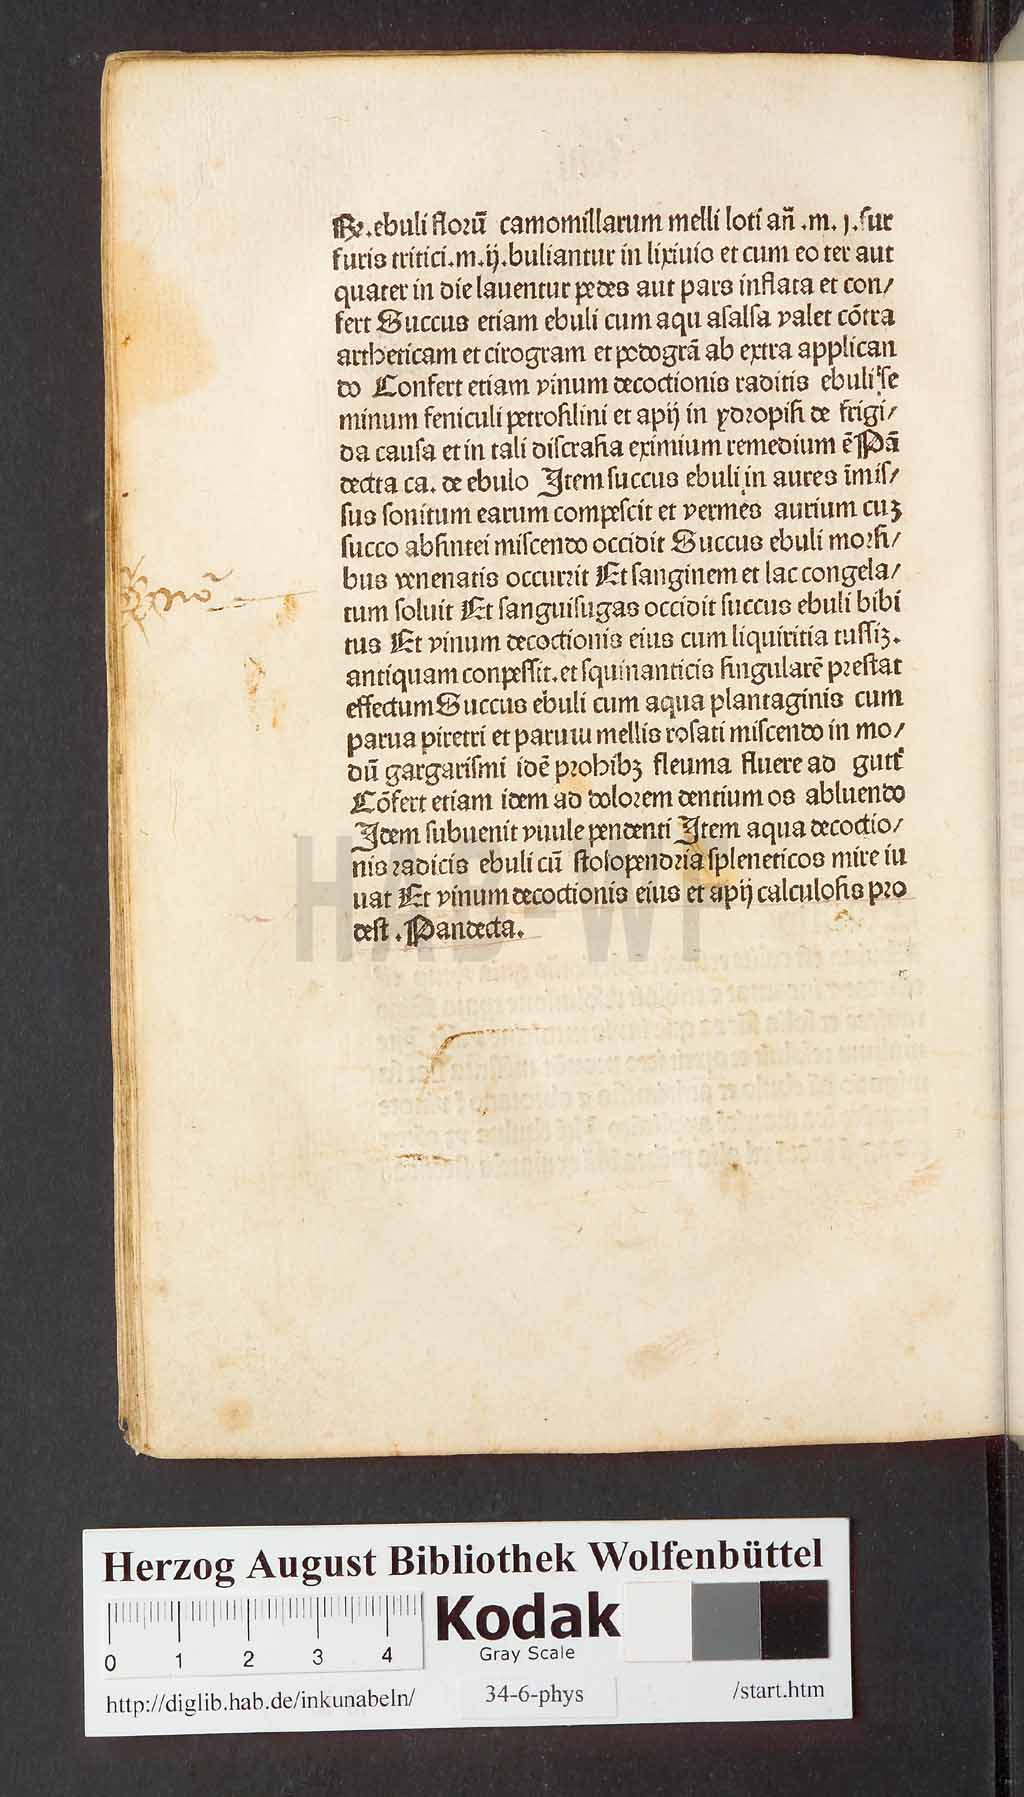 ℞.ebuli florū camomillarum melli loti an̄ .m. j.fur
furis tritici.m.ij.buliantur in lixiuio et cum eo ter aut
quater in die lauentur pedes aut pars inflata et con/
fert Succus etiam ebuli cum aqu asalsa valet cōtra
artheticam et cirogram et podogrā ab extra applican
do Confert etiam vinum decoctionis raditis ebuli se
minum feniculi petrosilini et apij in ydropisi de frigi/
da causa et in tali discrasia eximium remedium ē Pā
dectta ca. de ebulo Item succus ebuli in aures īmis/
sus sonitum earum compescit et vermes aurium cuꝫ
succo absintei miscendo occidit Succus ebuli morsi/
bus venenatis occurrit Et sanginem et lac congela/
tum soluit Et sanguisugas occidit succus ebuli bibi
tus Et vinum decoctionis eius cum liquiritia tussiꝫ.
antiquam conpessit.et squinanticis singularē prestat
effectum Succus ebuli cum aqua plantaginis cum
parua piretri et paruiu mellis rosati miscendo in mo/
dū gargarismi idē prohibꝫ fleuma fluere ad gutt
Cōfert etiam idem ad dolorem dentium os abluendo
Idem subuenit vuule pendenti Item aqua decoctio/
nis radicis ebuli cū stolopendria spleneticos mire iu
uat Et vinum decoctionis eius et apij calculosis pro
dest .Pandecta.
HAB-WF
Herzog August Bibliothek Wolfenbüttel
0 1 2 3 4
Kodak
Gray Scale
http://diglib.hab.de/inkunabeln/ 34-6-phys /start.htm